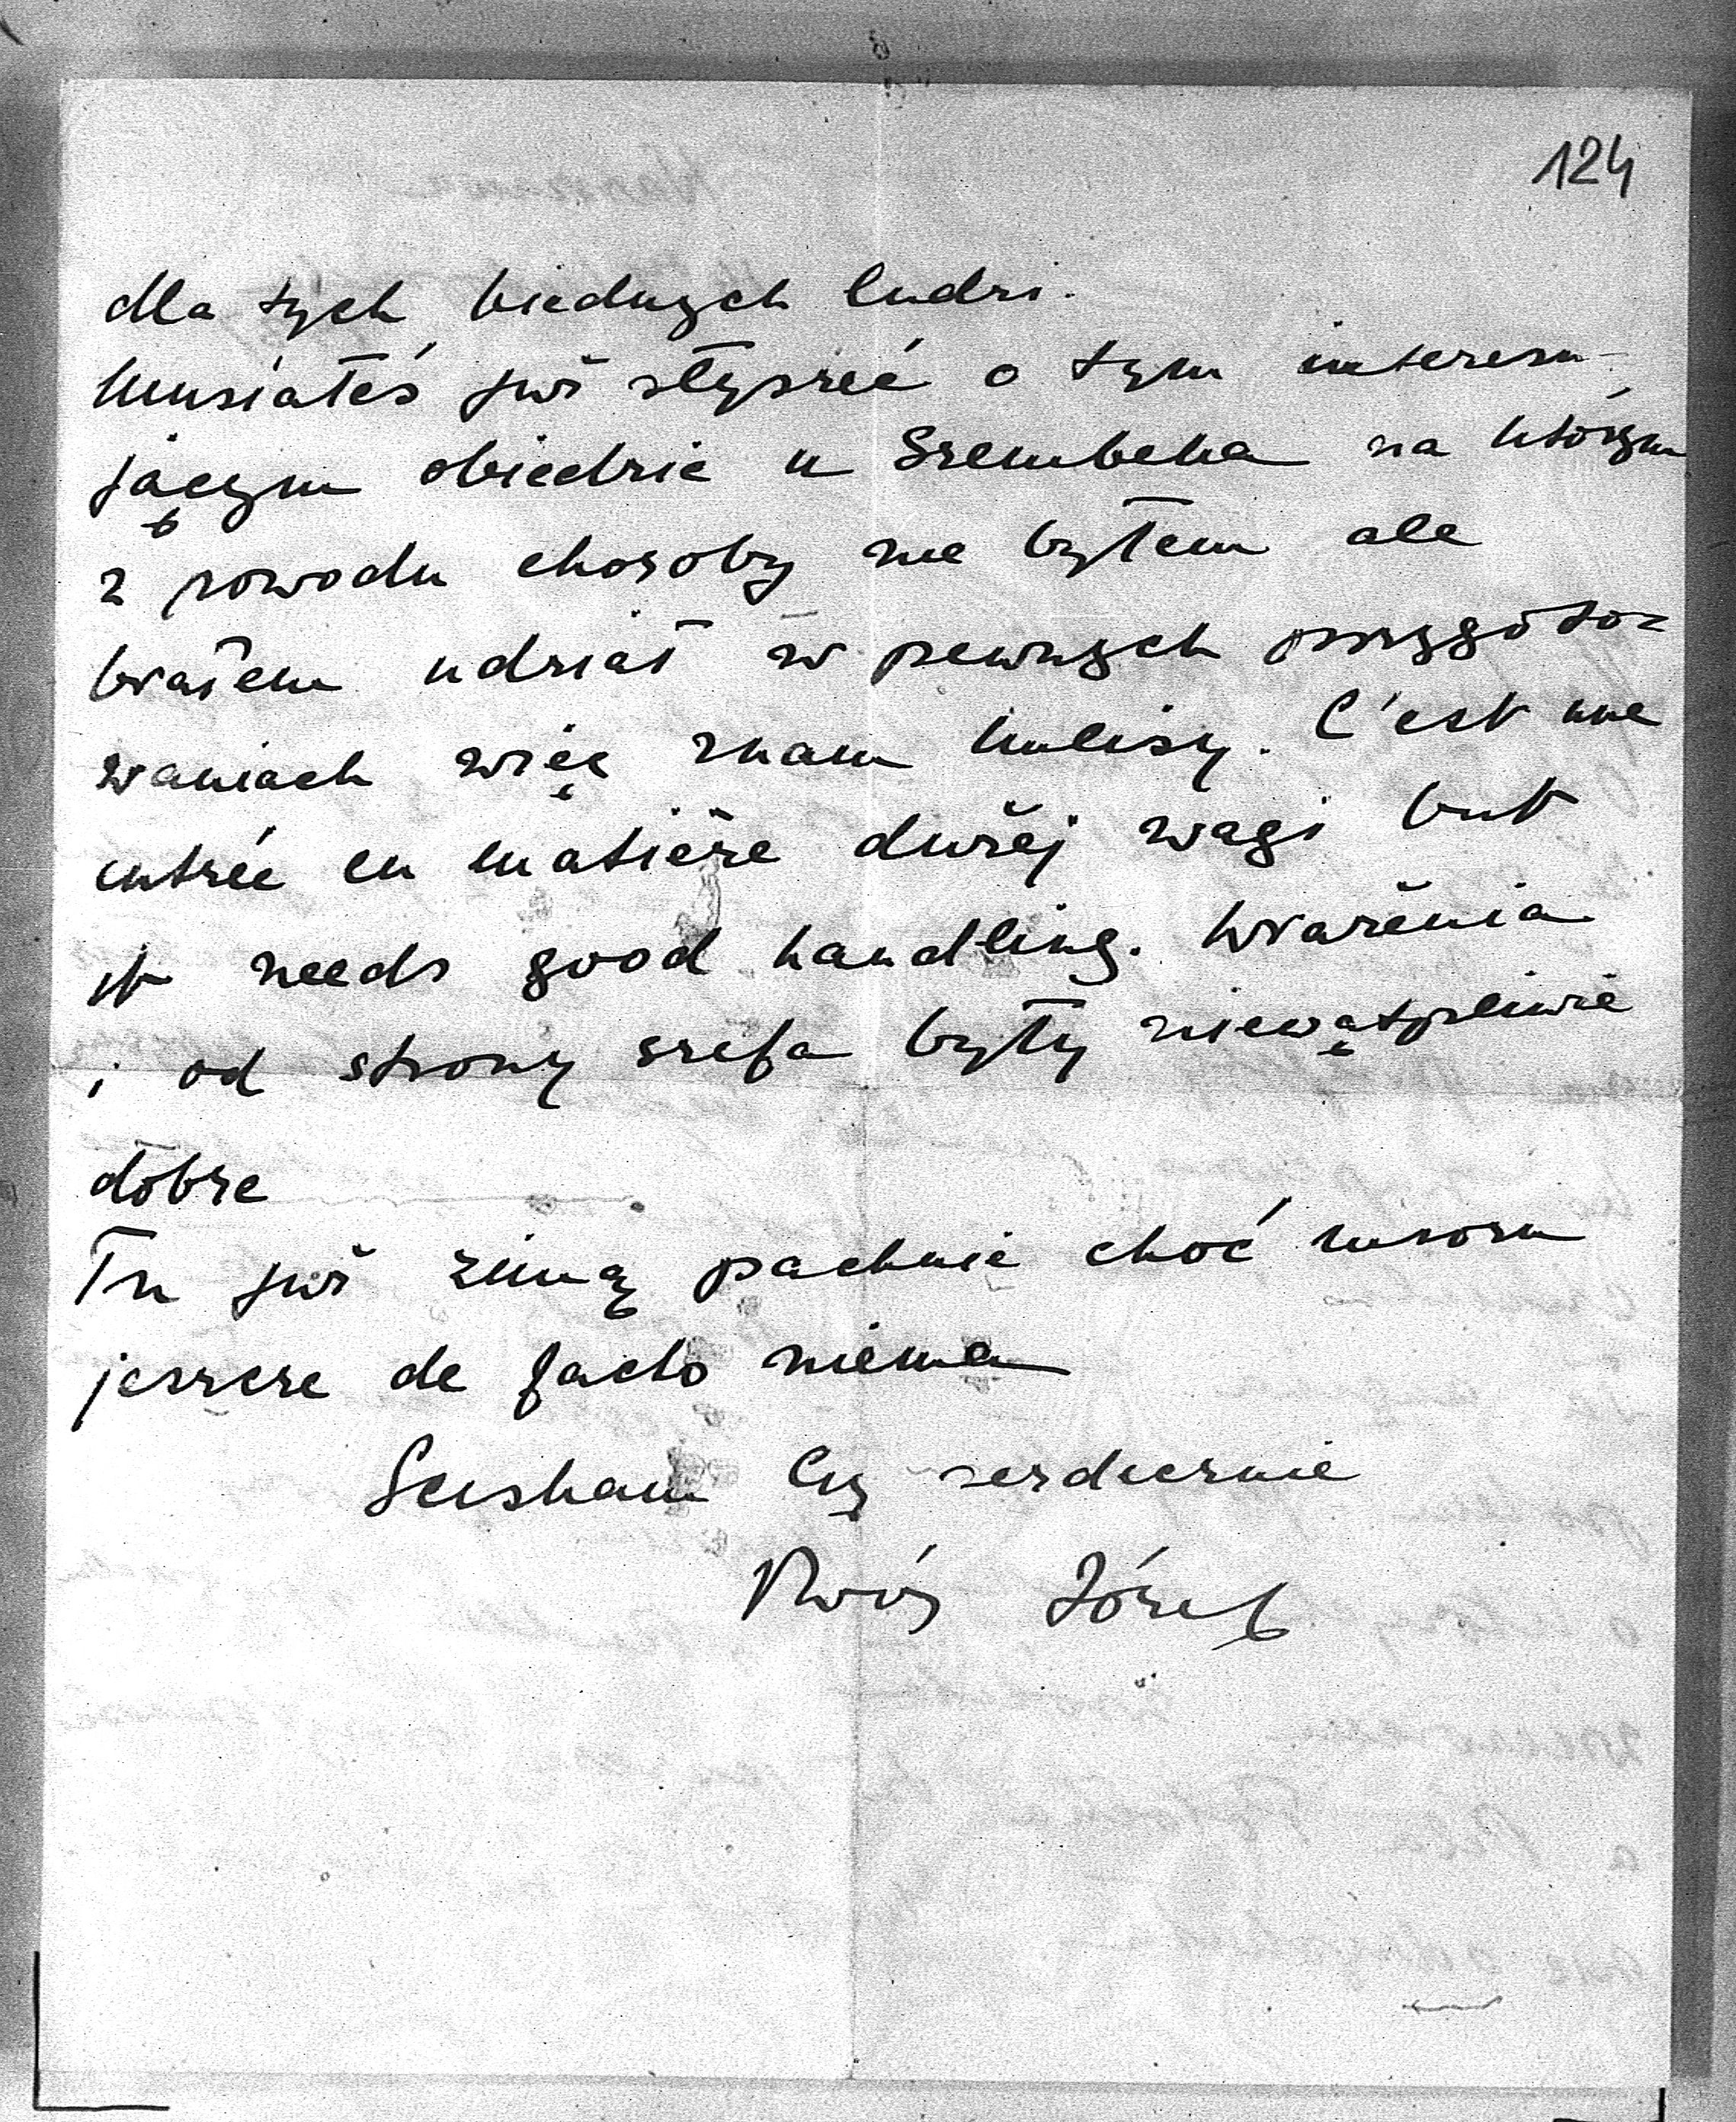 124
dla tych biednych ludzi.
Musiałeś już słyszeć o tym interesu-
jącym obiedzie u Szembeka na którym
z powodu choroby nie byłem ale
brałem udział w pewnych przygoto=
waniach więc znam kulisy. C'est une
entrée en matière dużej wagi but
it needs good handling. Wrażenia
i od strony szefa były niewątpliwie
dobre
Tu już zimą pachnie choć mrozu
jeszcze de facto niema
Ściskam Cię serdecznie
Twój Józef